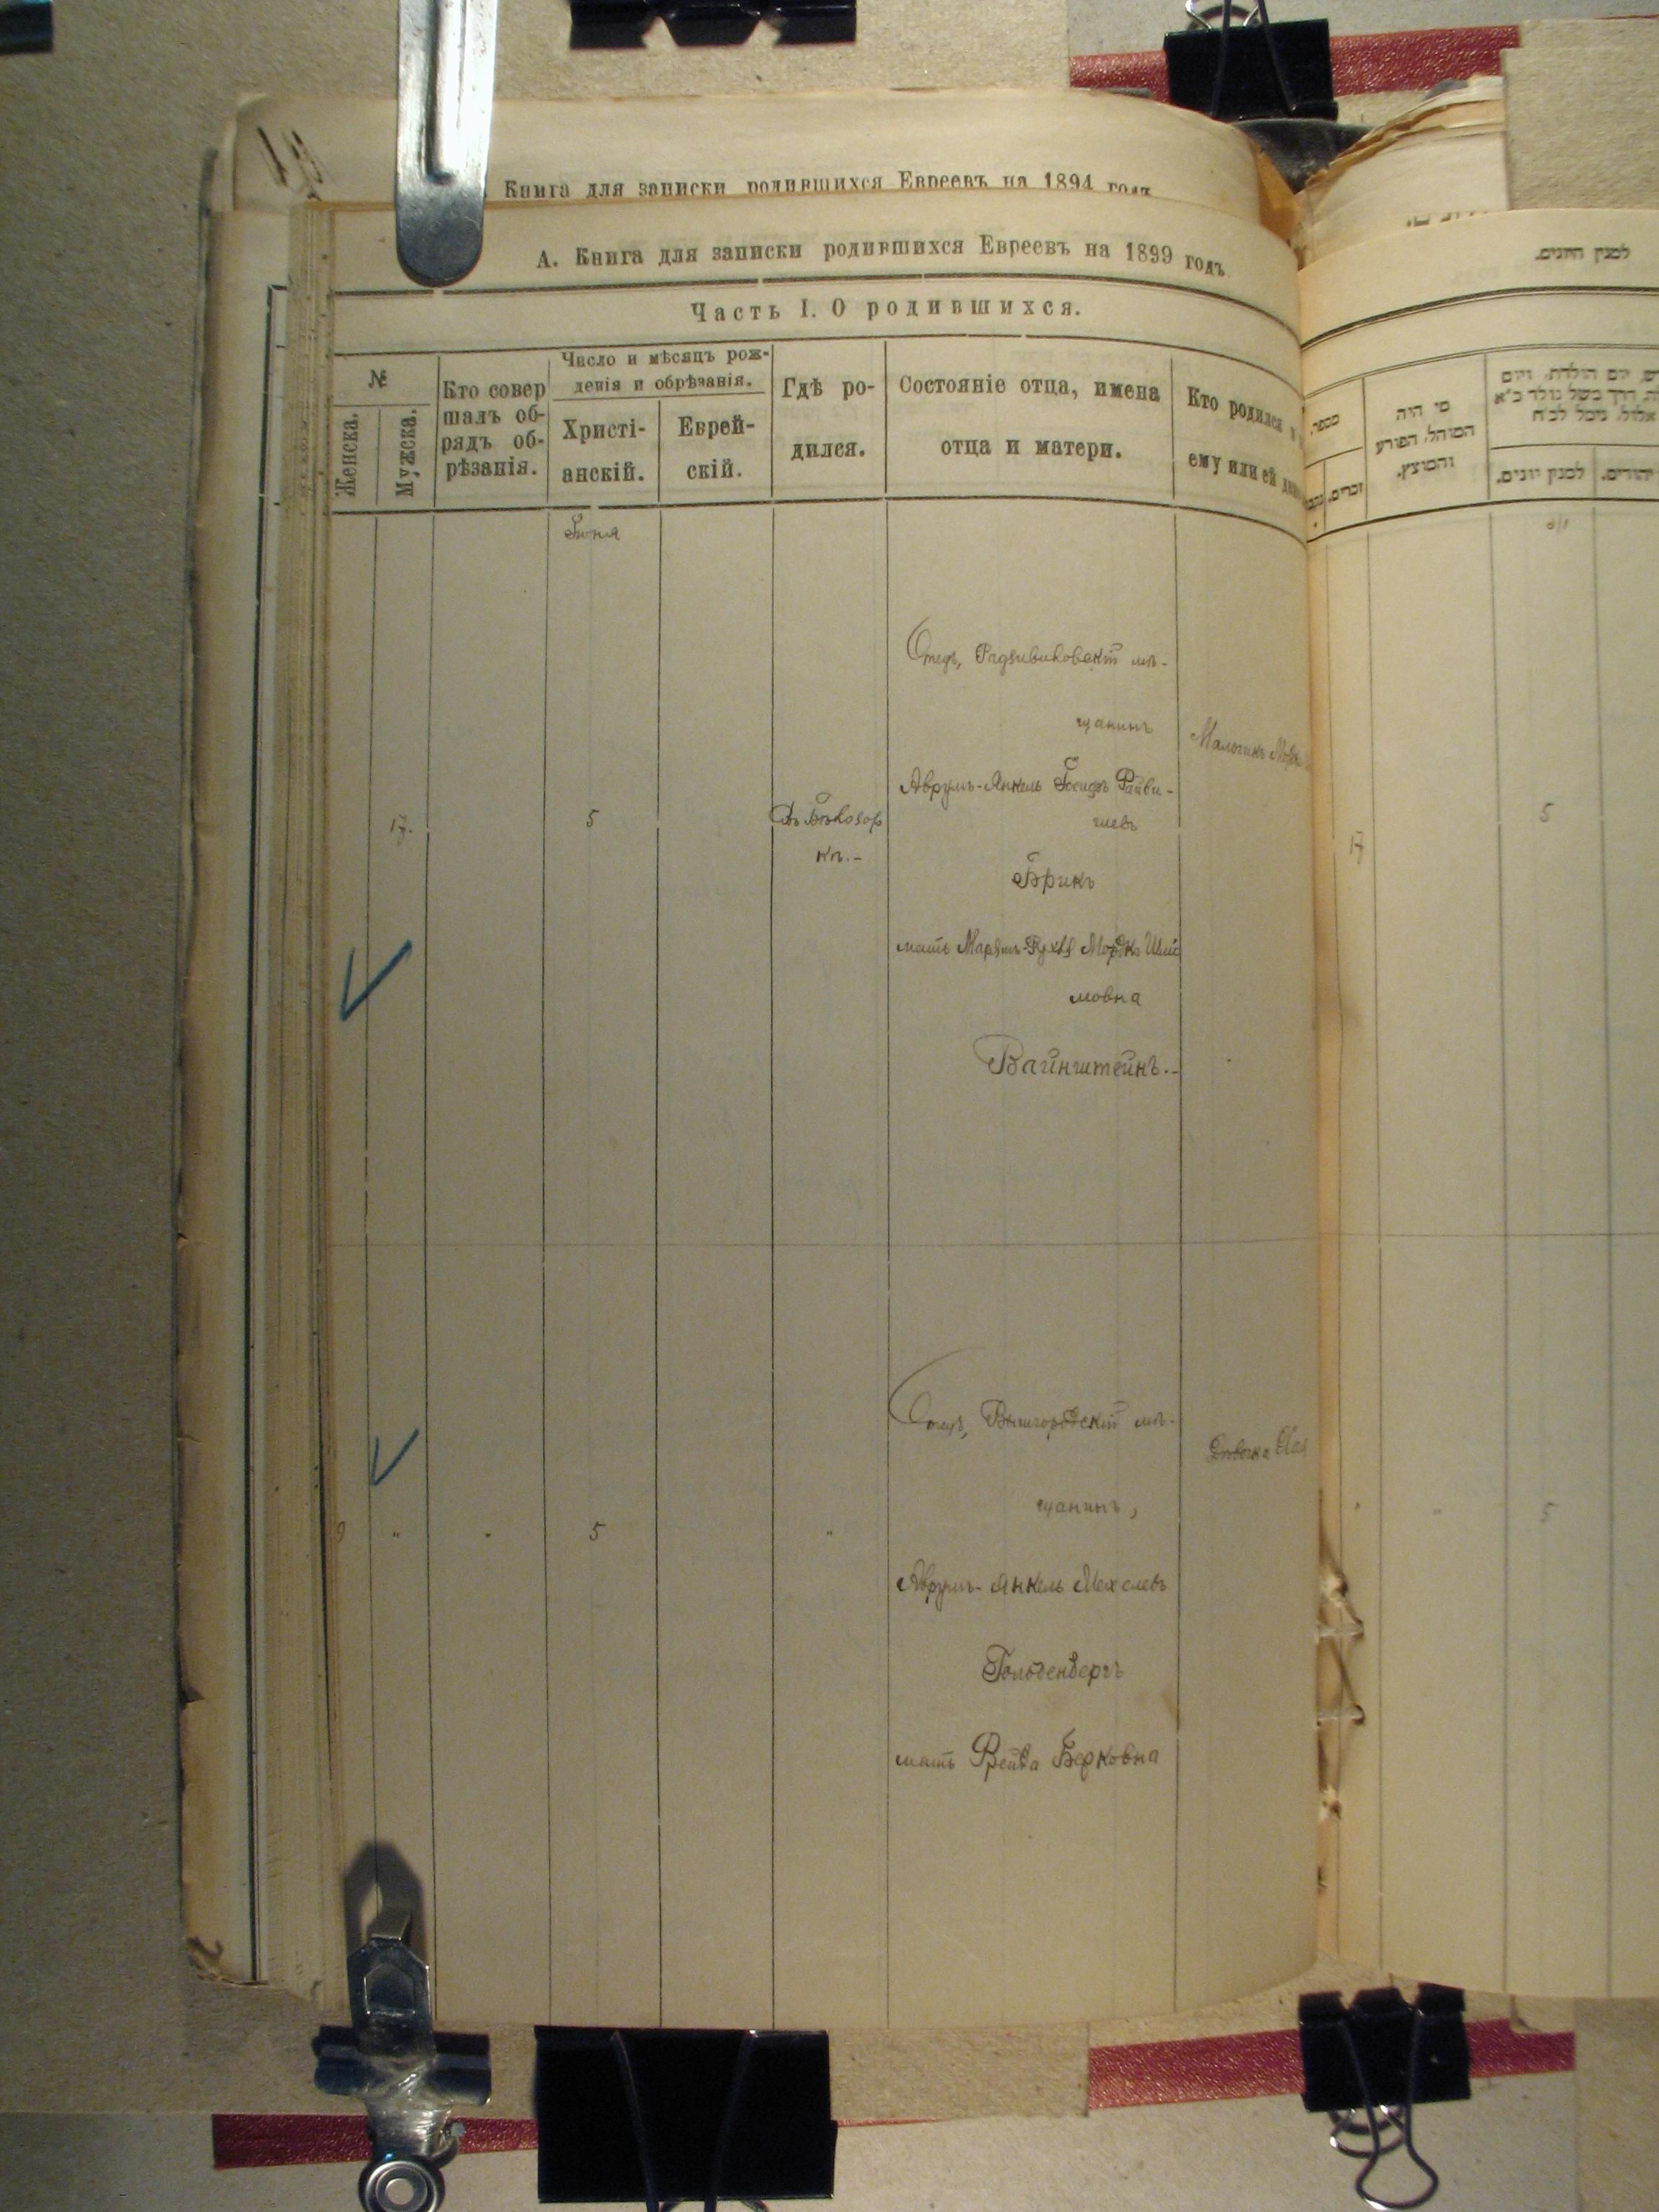 Книга для записки родившихся Евреевъ на 1894 годъ
А. Книга для записки родившихся Евреевъ на 1899 годъ
Часть I. О родившихся.
№
Женска.
Мужска.
Кто совер
шалъ об-
рядъ об-
рѣзанія.
Число и мѣсяцъ рож-
денія и обрѣзанія.
Христі-
анскій.
Еврей-
скій.
Гдѣ ро-
дился.
Состояніе отца, имена
отца и матери.
Кто родился и
ему или ей дано
Іюня
17.
5
Въ Бѣлозор
кѣ.-
Отецъ, Радзивиловскій мѣ-
щанинъ
Аврумъ-Янкель Іосифъ
Брикъ
мать Марямъ-Рухля Мордко
мовна
Вайнштейнъ.-
Мальчикъ
9
"
"
5
"
Отецъ, Вышгородскій мѣ-
щанинъ,
Аврумъ-Янкель Мехелевъ
Гольденбергъ
мать Фрейда Берковна
Дѣвочка
למנין היונים.
מספר
זכרים.
מי היה
המוהל, הפורע
והמוצץ.
למנין יונים.
יהודים.
17
5
5